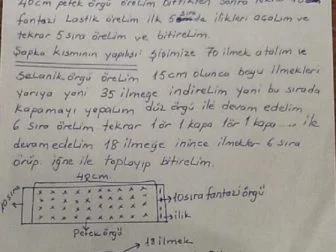 40cm petek örgü örelim bittikten sonra tekrar
fantazi lastik örelim ilk sırada ilikleri açalım ve
tekrar 5 sıra örelim ve bitirelim.
Şapka kısmının yapılışı: şişimize 70 ilmek atalım ve
Selanik örgü örelim 15cm olunca boyu ilmekleri
yarıya yani 35 ilmeğe indirelim yani bu sırada
kapamayı yapalım düz örgü ile devam edelim
6 sıra örelim tekrar 1ör 1kapa 1ör 1kapa... ile
devam edelim 18 ilmeğe inince ilmekler 6 sıra
örüp iğne ile toplayıp bitirelim.
48cm.
10 sıra
10 sıra fantazi örgü
ilik
Petek örgü
18 ilmek